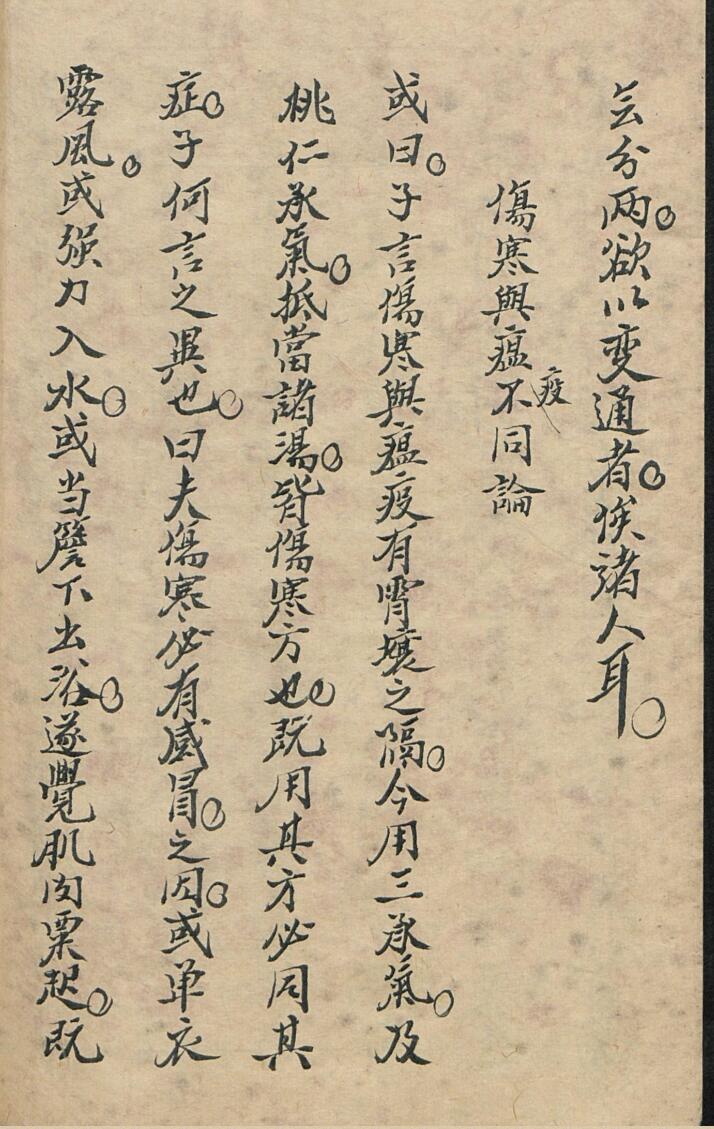 云分两。欲以变通者。俟諸人耳。
傷寒與瘟疫不同論
或曰。子言傷寒與瘟疫有霄壤之隔。今用三承氣。及
桃仁承氣。抵當諸湯。皆傷寒方也。既用其方必同其
症。子何言之異也。曰夫傷寒必有感冒。之因。或单衣
露風。或强力入水。或当簷下出浴。遂覺肌肉粟起。既